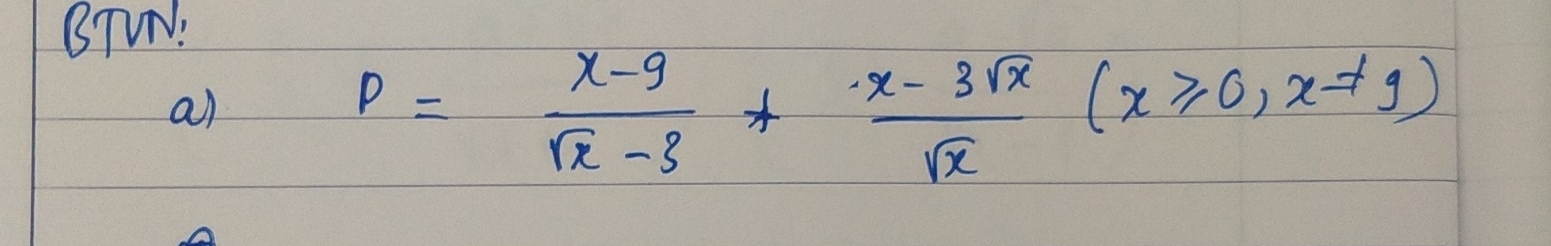 BTVN:
a) P = \frac{x-9}{\sqrt{x}-3} + \frac{x-3\sqrt{x}}{\sqrt{x}} (x ⩾ 0, x ≠ 9)